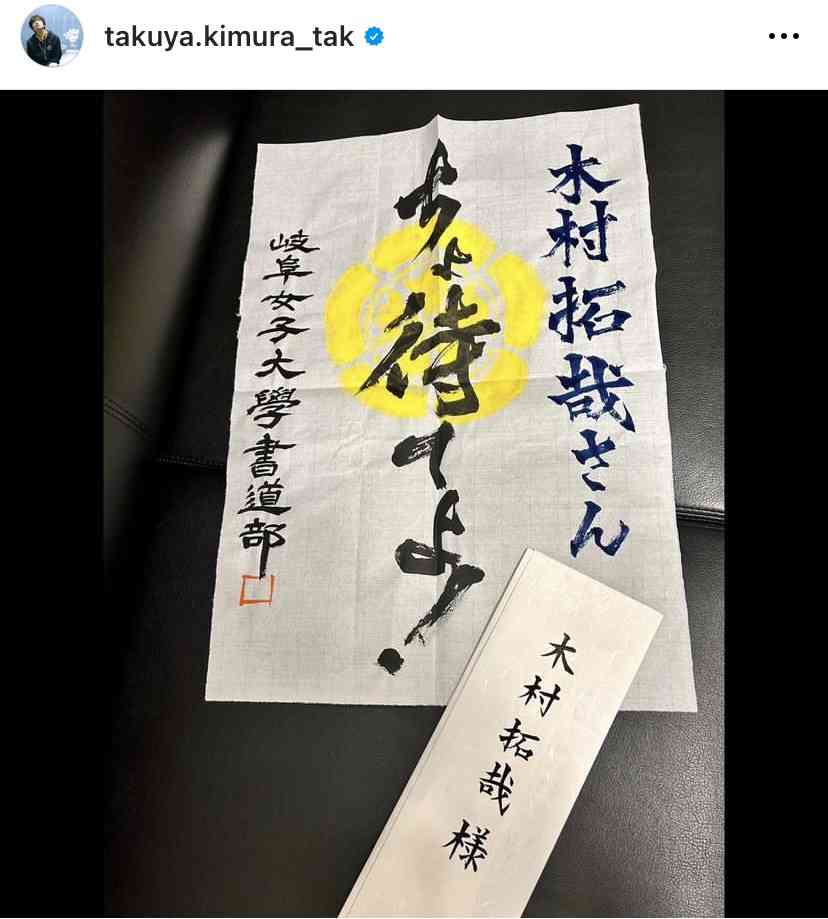 takuya.kimura_tak
木村拓哉さん
ちょ待てよ!
岐阜女子大學書道部
木村拓哉様